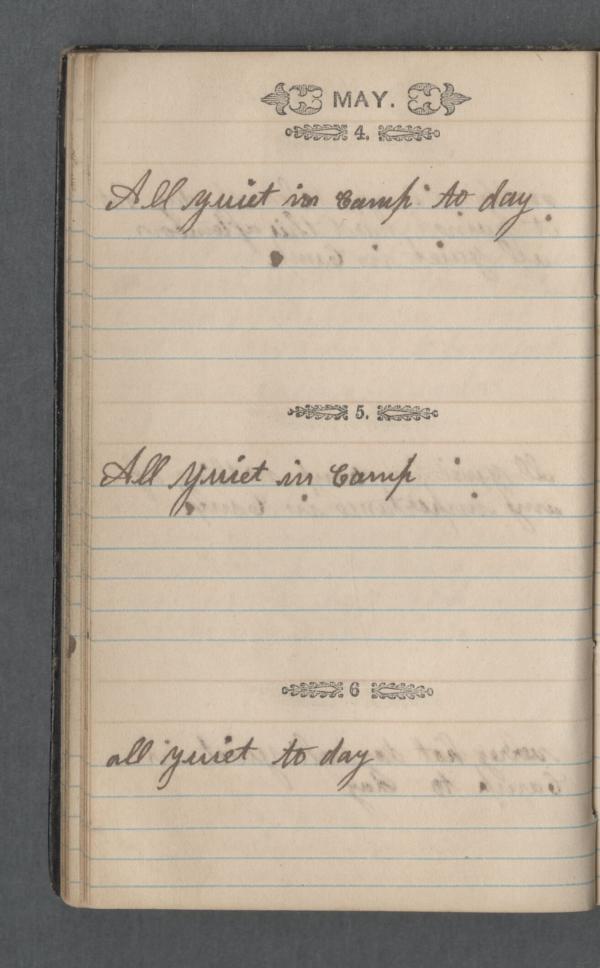 MAY.
4.
All quiet in Camp to day
5.
All quiet in Camp
6
all quiet to day